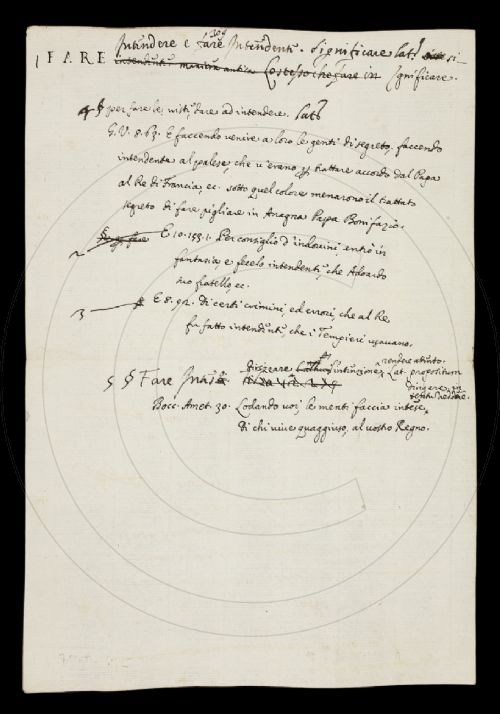 Intendere e fare Intendenti. Significare lat. si-
1 FARE
intendenti maniera antica Lo stesso che fare in significare.
4 § per fare le viste, dare ad intendere. lat.
G. V. 8. 63. E faccendo venire a loro le genti di segreto, faccendo
intendente al palese, che v'erano per trattare accordo dal Papa
al Re di Francia, ec. sotto quel colore menarono il trattato
segreto di fare pigliare in Anagna Papa Bonifazio.
2 E 10. 155. 1. Per consiglio d'indovini, entrò in
fantasia, e fecelo intendenti, che Adoardo
suo fratello, ec.
3 E 8. 92. Di certi crimini, ed errori, che al Re
fu fatto intendente, che i Tempieri usavano.
rendere attento.
5 § Fare Dirizzare l'intenzione, Lat. propositum
dirigere, in
Bocc. Amet. 30. Lodando voi, le menti faccia intese,
Di chi vive quaggiuso, al vostro Regno.